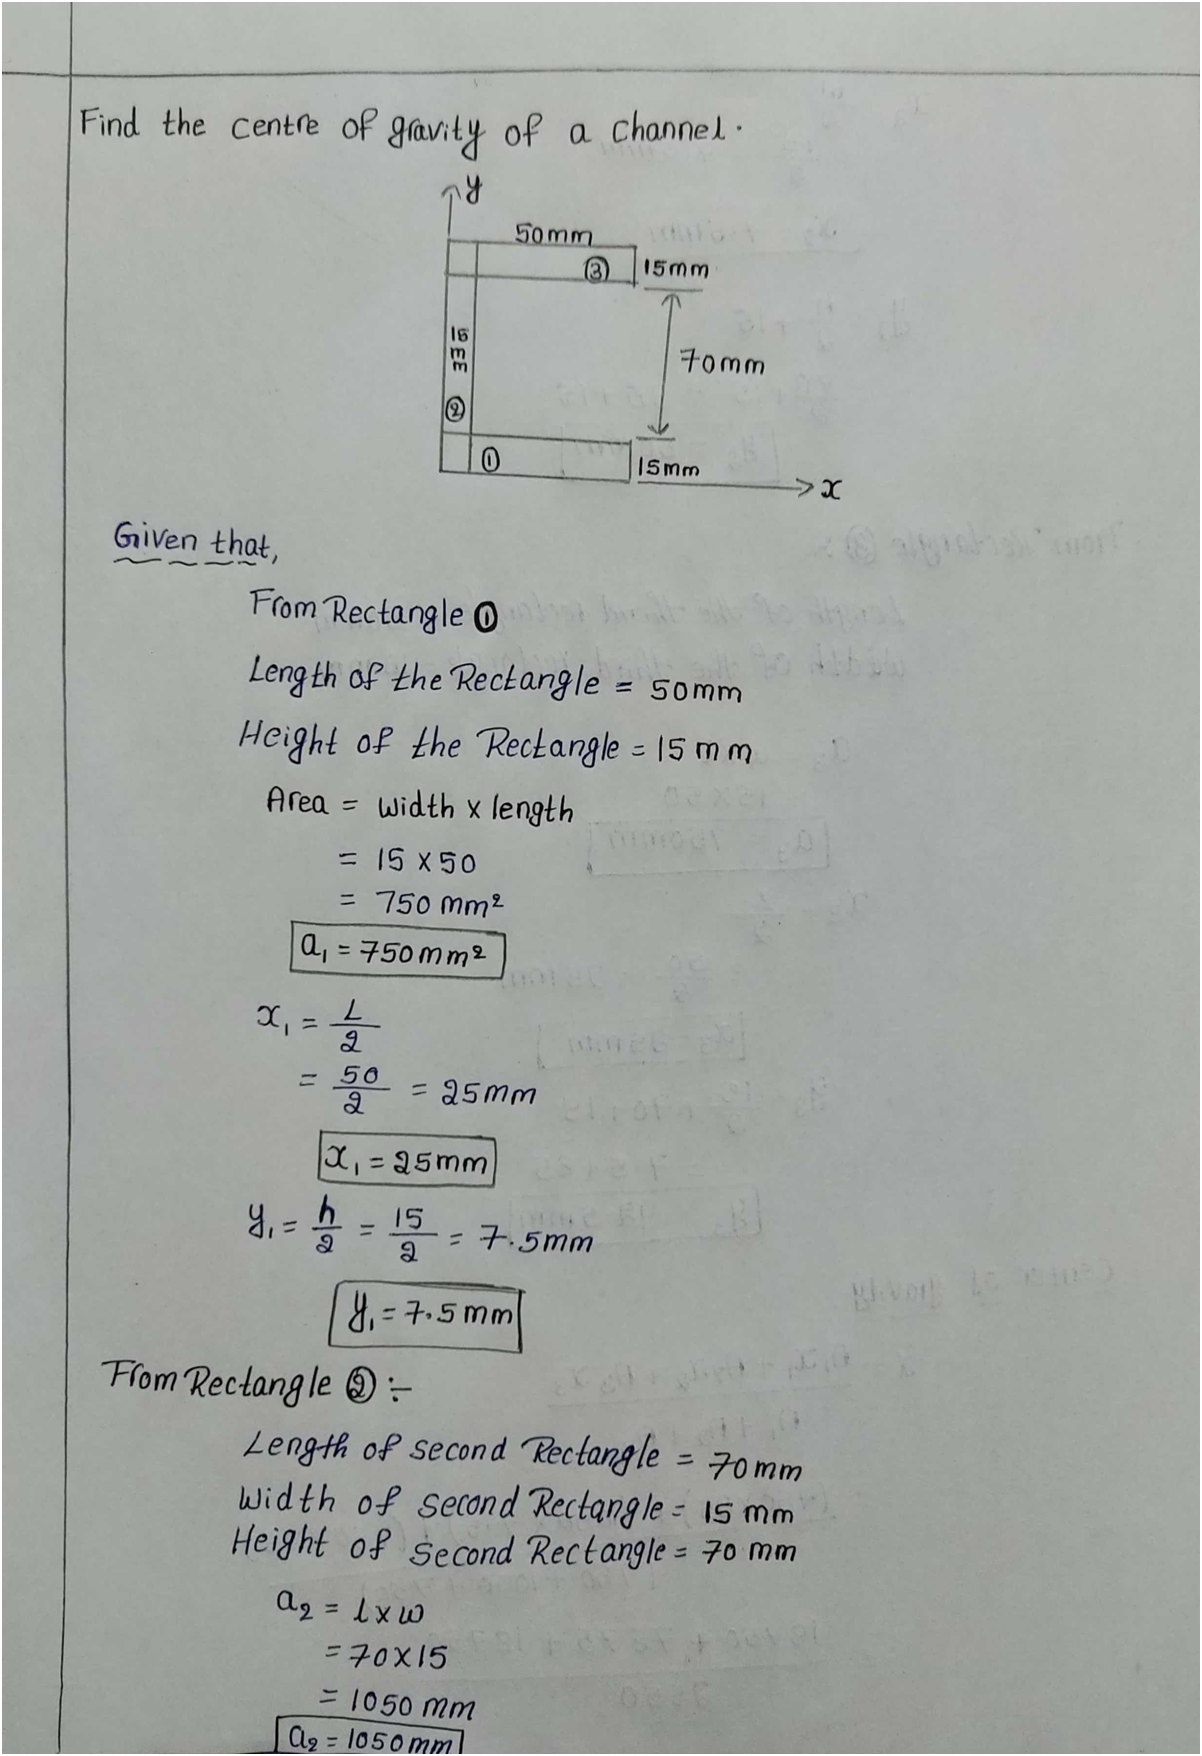 Find the centre of gravity of a channel.
y
50mm
③ 15mm
15mm
70mm
②
① 15mm
x
Given that,
From Rectangle ①
Length of the Rectangle = 50mm
Height of the Rectangle = 15mm
Area = width x length
= 15 x 50
= 750 mm²
a₁ = 750mm²
x₁ = L/2
= 50/2 = 25mm
x₁ = 25mm
y₁ = h/2 = 15/2 = 7.5mm
y₁ = 7.5mm
From Rectangle ② :-
Length of second Rectangle = 70mm
Width of second Rectangle = 15 mm
Height of second Rectangle = 70 mm
a₂ = l x w
= 70x15
= 1050 mm
a₂ = 1050mm